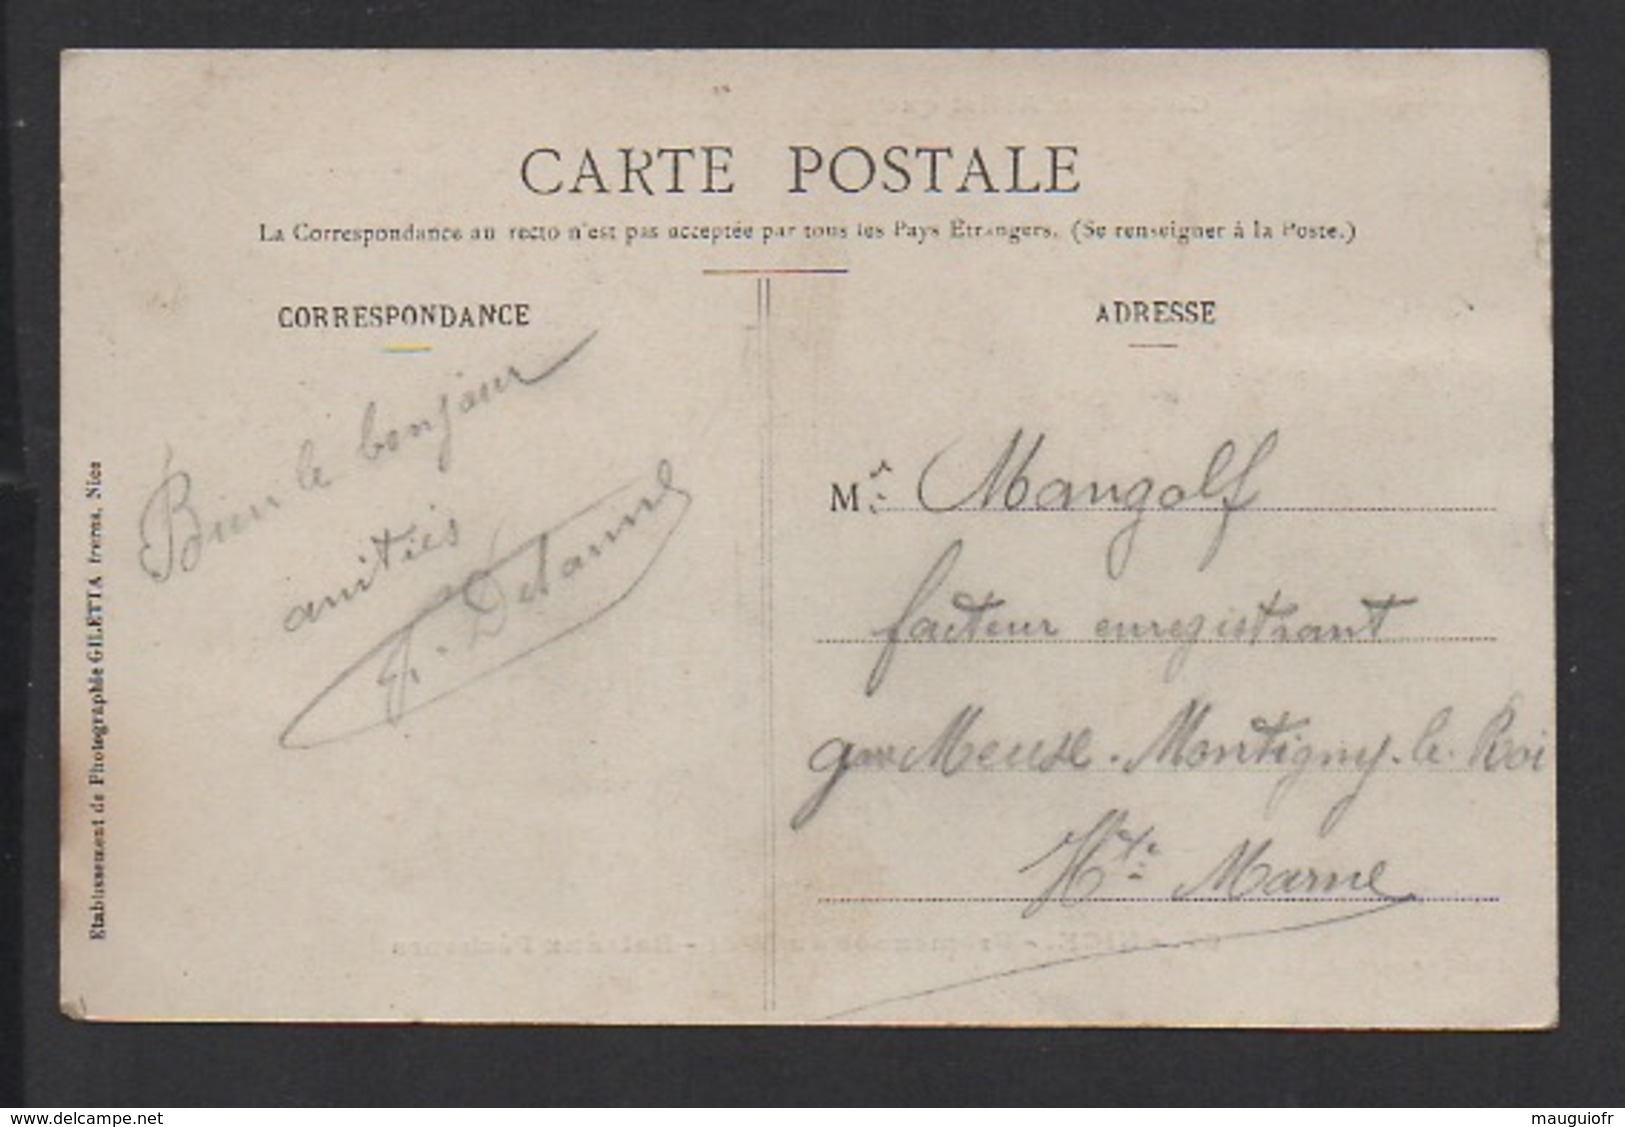 CARTE POSTALE
La Correspondance au recto n'est pas acceptée par tous les Pays Étrangers. (Se renseigner à la Poste.)
CORRESPONDANCE
Bien le bonjour
amitiés
ADRESSE
Mr Mangolf
facteur enregistrant
gare Meuse. Montigny-le-Roi
Hte Marne
Etablissement de Photographie GILETTA frères, Nice
www.delcampe.net
mauguiofr